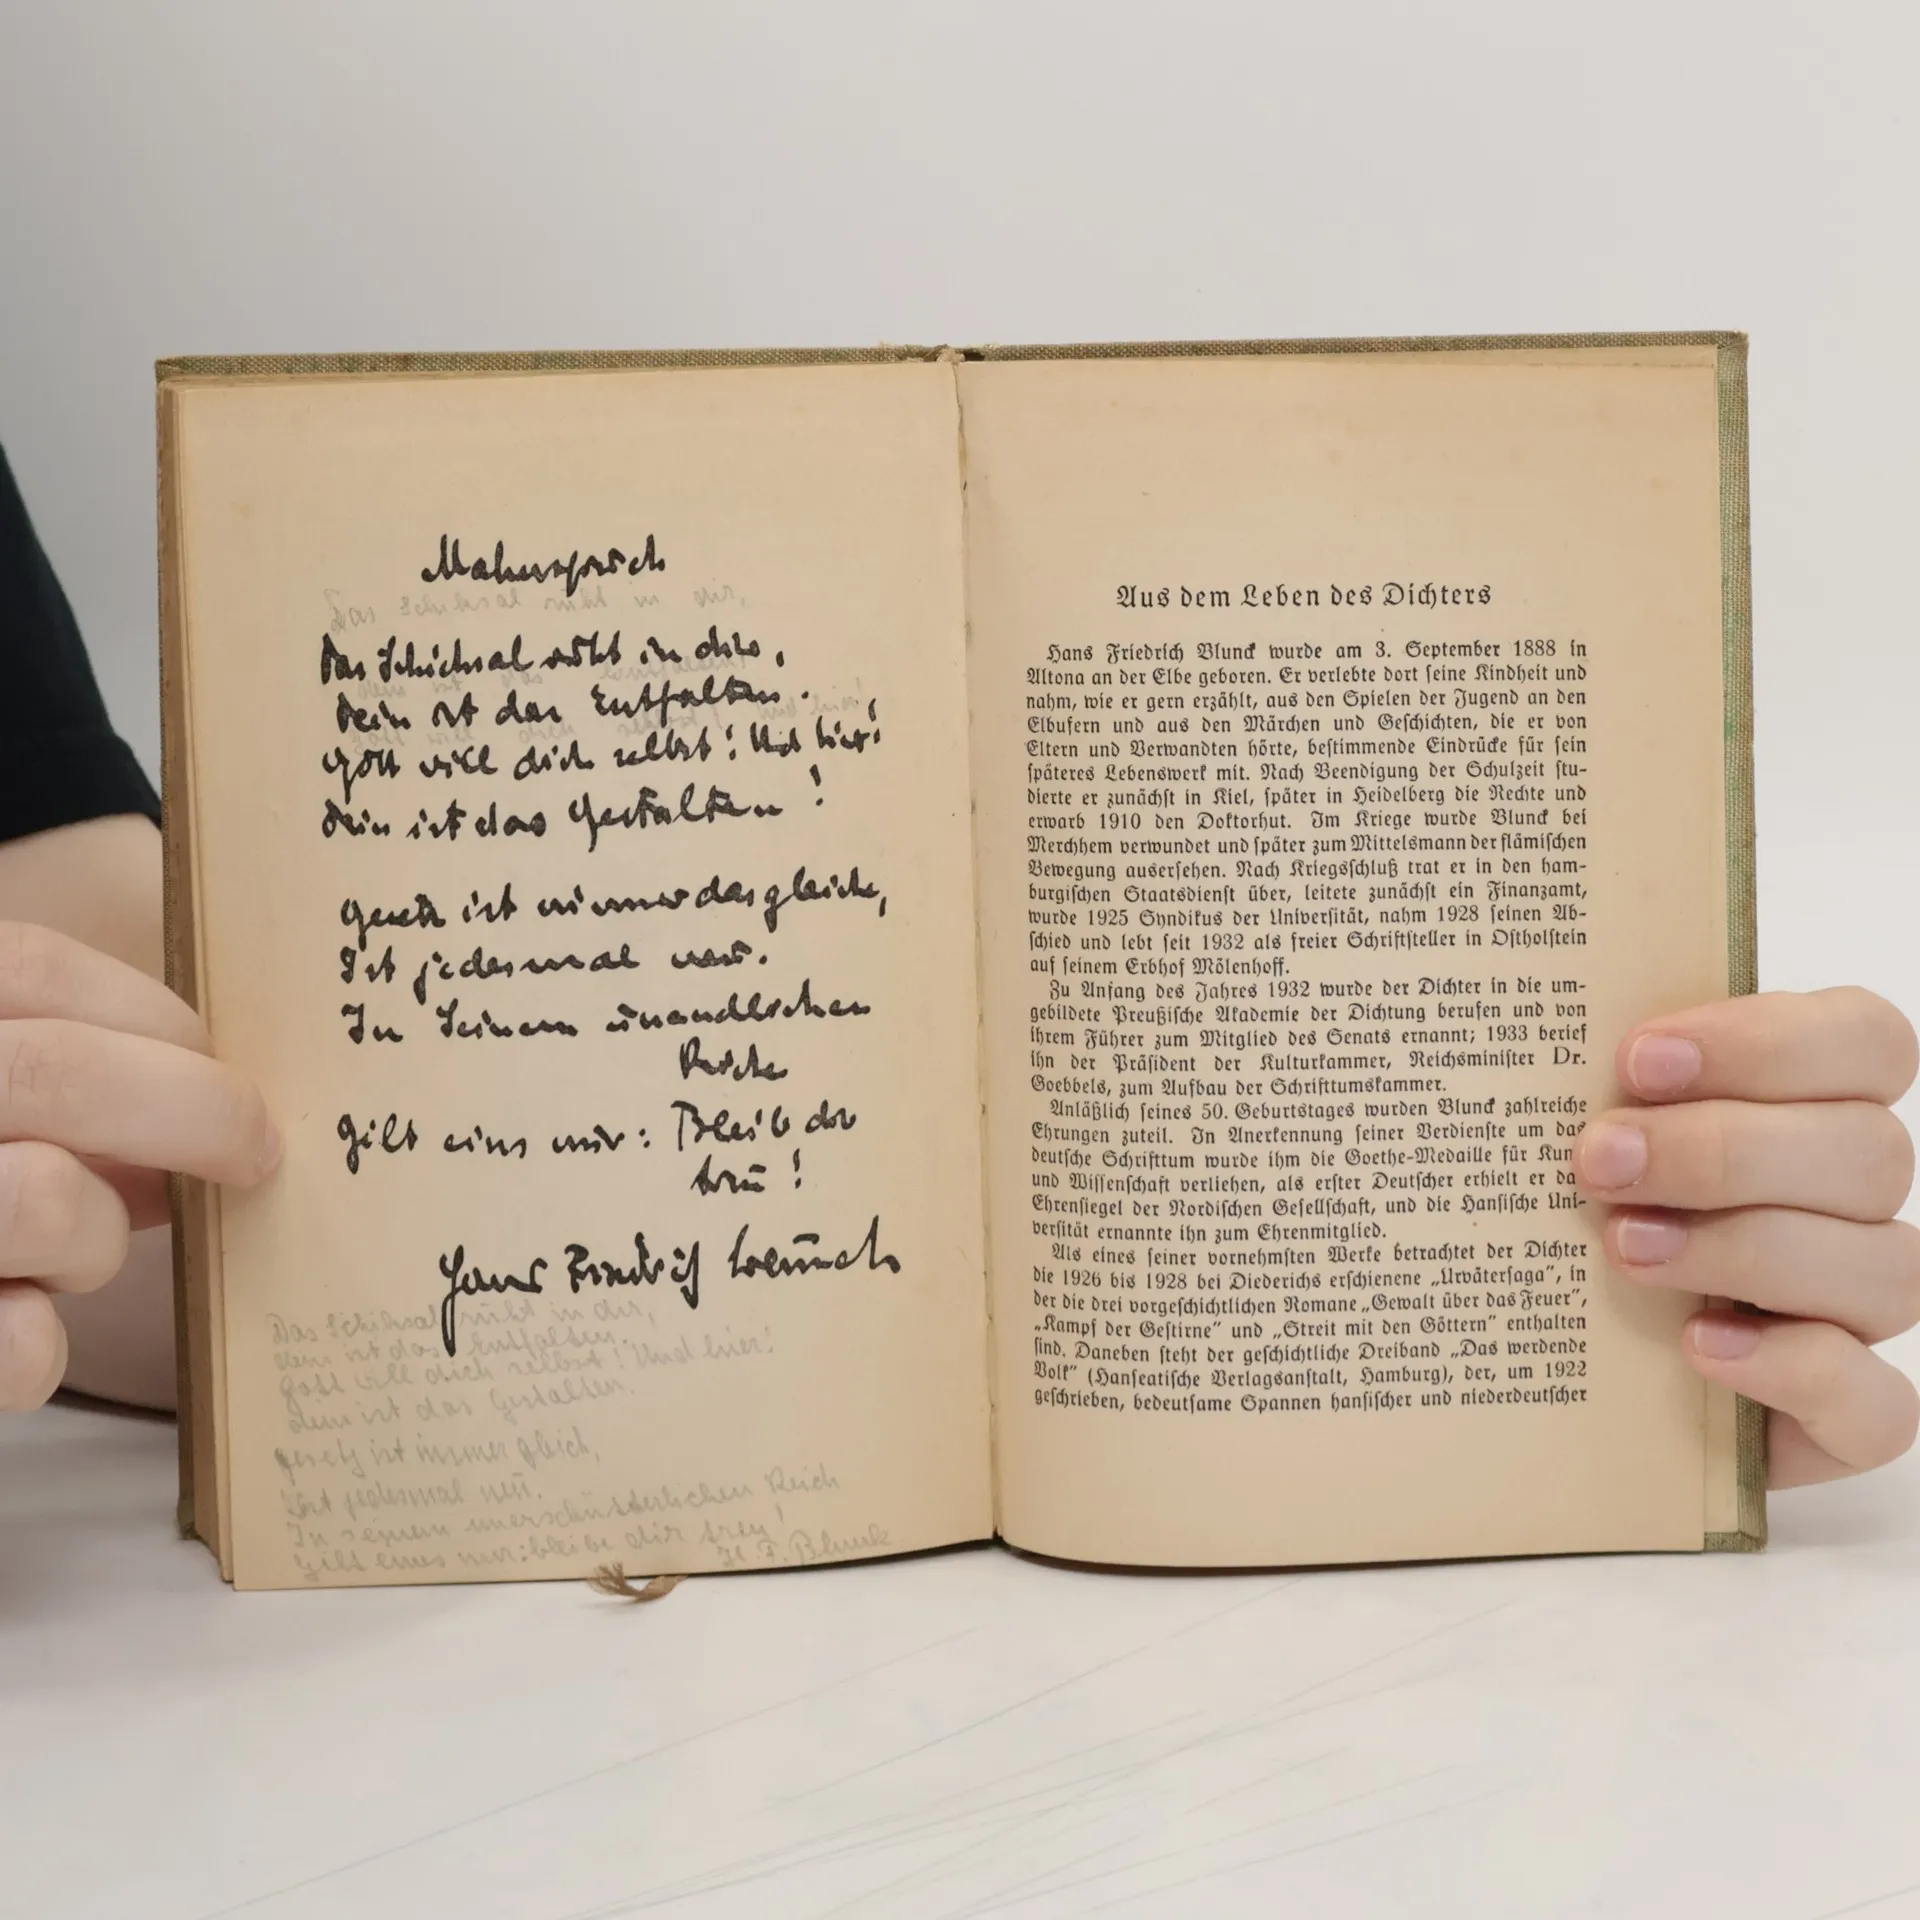 Mahnspruch
Das Schicksal ruht in dir,
Dein ist das Entfalten.
Gott will dich selbst! Und hier!
Dein ist das Gestalten!
Gesetz ist immer das gleiche,
Ist jedesmal neu.
In Seinem unendlichen
Reiche
Gilt eins nur: Bleib dir
treu!
Hans Friedrich Blunck
Das Schiksal ruht in dir,
Das Schiksal ruht in dir,
dein ist das Entfalten.
Gott will dich selbst! Und hier!
dein ist das Gestalten.
gesetz ist immer gleich,
ist jedesmal neu.
In seinem unerschütterlichen Reich
Gilt eines nur: bleibe dir treu!
H. F. Blunck
Aus dem Leben des Dichters
Hans Friedrich Blunck wurde am 3. September 1888 in
Altona an der Elbe geboren. Er verlebte dort seine Kindheit und
nahm, wie er gern erzählt, aus den Spielen der Jugend an den
Elbufern und aus den Märchen und Geschichten, die er von
Eltern und Verwandten hörte, bestimmende Eindrücke für sein
späteres Lebenswerk mit. Nach Beendigung der Schulzeit stu-
dierte er zunächst in Kiel, später in Heidelberg die Rechte und
erwarb 1910 den Doktorhut. Im Kriege wurde Blunck bei
Merchhem verwundet und später zum Mittelsmann der flämischen
Bewegung ausersehen. Nach Kriegsschluß trat er in den ham-
burgischen Staatsdienst über, leitete zunächst ein Finanzamt,
wurde 1925 Syndikus der Universität, nahm 1928 seinen Ab-
schied und lebt seit 1932 als freier Schriftsteller in Ostholstein
auf seinem Erbhof Mölenhoff.
Zu Anfang des Jahres 1932 wurde der Dichter in die um-
gebildete Preußische Akademie der Dichtung berufen und von
ihrem Führer zum Mitglied des Senats ernannt; 1933 berief
ihn der Präsident der Kulturkammer, Reichsminister Dr.
Goebbels, zum Aufbau der Schrifttumskammer.
Anläßlich seines 50. Geburtstages wurden Blunck zahlreiche
Ehrungen zuteil. In Anerkennung seiner Verdienste um das
deutsche Schrifttum wurde ihm die Goethe-Medaille für Kun
und Wissenschaft verliehen, als erster Deutscher erhielt er da
Ehrensiegel der Nordischen Gesellschaft, und die Hansische Uni-
versität ernannte ihn zum Ehrenmitglied.
Als eines seiner vornehmsten Werke betrachtet der Dichter
die 1926 bis 1928 bei Diederichs erschienene „Urvätersaga", in
der die drei vorgeschichtlichen Romane „Gewalt über das Feuer",
„Kampf der Gestirne" und „Streit mit den Göttern" enthalten
sind. Daneben steht der geschichtliche Dreiband „Das werdende
Volk" (Hanseatische Verlagsanstalt, Hamburg), der, um 1922
geschrieben, bedeutsame Spannen hansischer und niederdeutscher